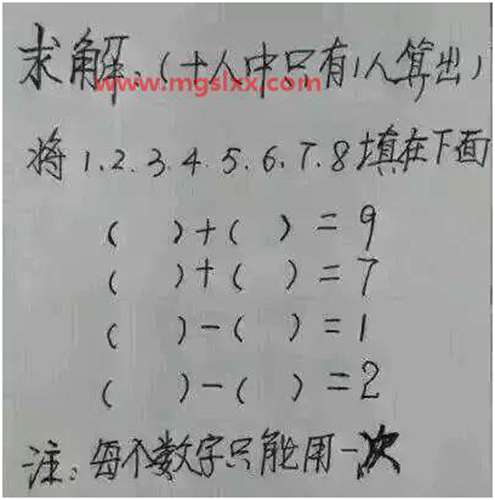 求解:(十人中只有1人算出)
www.mgslxx.com
将1.2.3.4.5.6.7.8填在下面
( )+( )=9
( )+( )=7
( )-( )=1
( )-( )=2
注:每个数字只能用一次